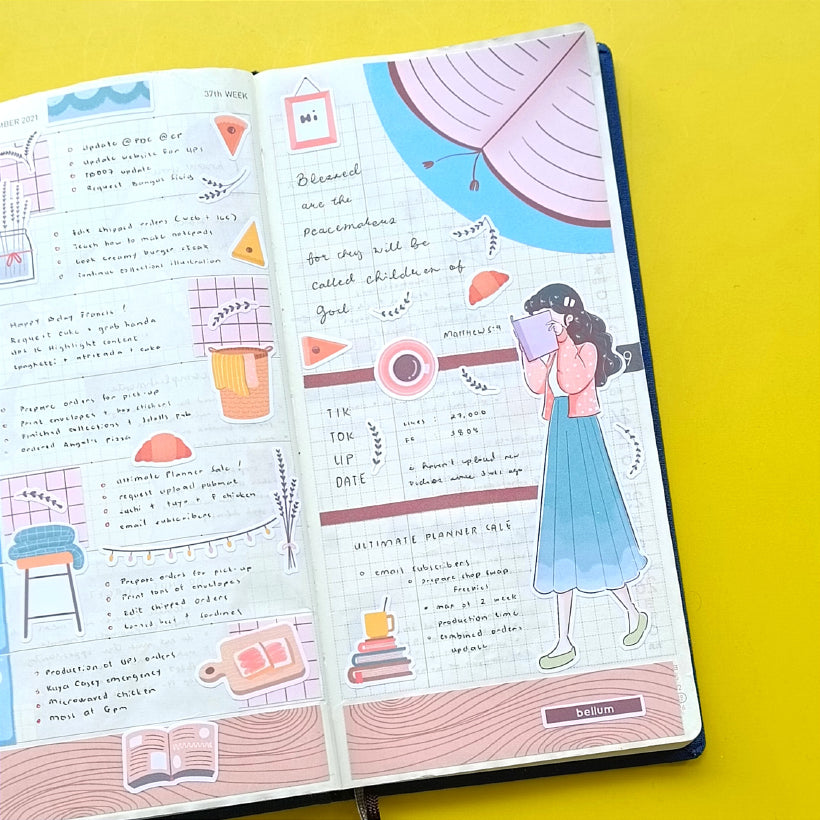 MBER 2021
37th WEEK
update @ PDC @ CP
update website for UPS
update
Request Bangus
Edit shipped orders (web + IGC)
Teach how to make notepads
Cook creamy burger steak
Continue collections illustration
Happy Bday Francis !
Request cake + grab handa
Highlight content
spaghetti + + cake
Prepare orders for pick-up
Print envelopes + box stickers
Finished collections +
ordered Angel's Pizza
ultimate Planner Sale !
request upload pubmat
sushi + tuyo + F chicken
email subscribers
Prepare orders for pick-up
Print tons of envelopes
Edit shipped orders
corned beef + sardines
Production of UPS orders
Kuya Casey emergency
microwaved chicken
mass at 6pm
Hi
Blessed
are the
peacemakers
for they will be
called children of
God
MATTHEW 5:9
9
TIK
TOK
UP
DATE
Likes : 27,000
FF : 3808
haven't upload new
videos since 3 wks ago
ULTIMATE PLANNER SALE
email subscribers
prepare shop swap
Freebies
map at 2 week
production time
combined orders
update
bellum